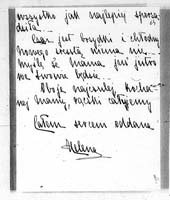 wszystko jak najlepiej sporzą-
dziła.
Czas jest brzydki i chłodny
nowego wcale niema nic
myślę że mama jeś jutro
na twoim będzie.
Oboje najczulej kocha-
nej Mamy, rączki całujemy
Całem sercem oddana
Helena